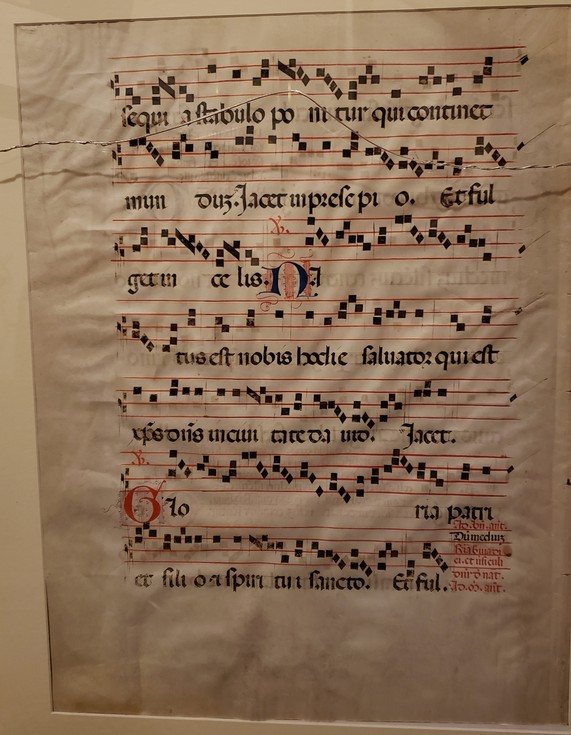 sequi a stabulo po ni tur qui continet
mun duz. Jacet in presepi o. Et ful
get in ce lis. V. NA
tus est nobis hodie salvator qui est
xp̄s dn̄s in civi tate da vid. Jacet.
V.
Glo ria patri
et fili o et spiri tui sancto. Et ful.